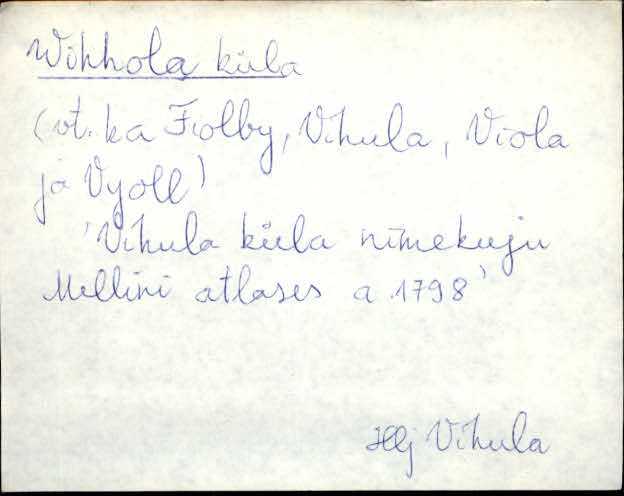 Wihhola küla
(vt. ka Fiolby, Vihula, Viola
ja Vyoll)
'Vihula küla nimekuju
Mellini atlases a. 1798'
Hlj Vihula